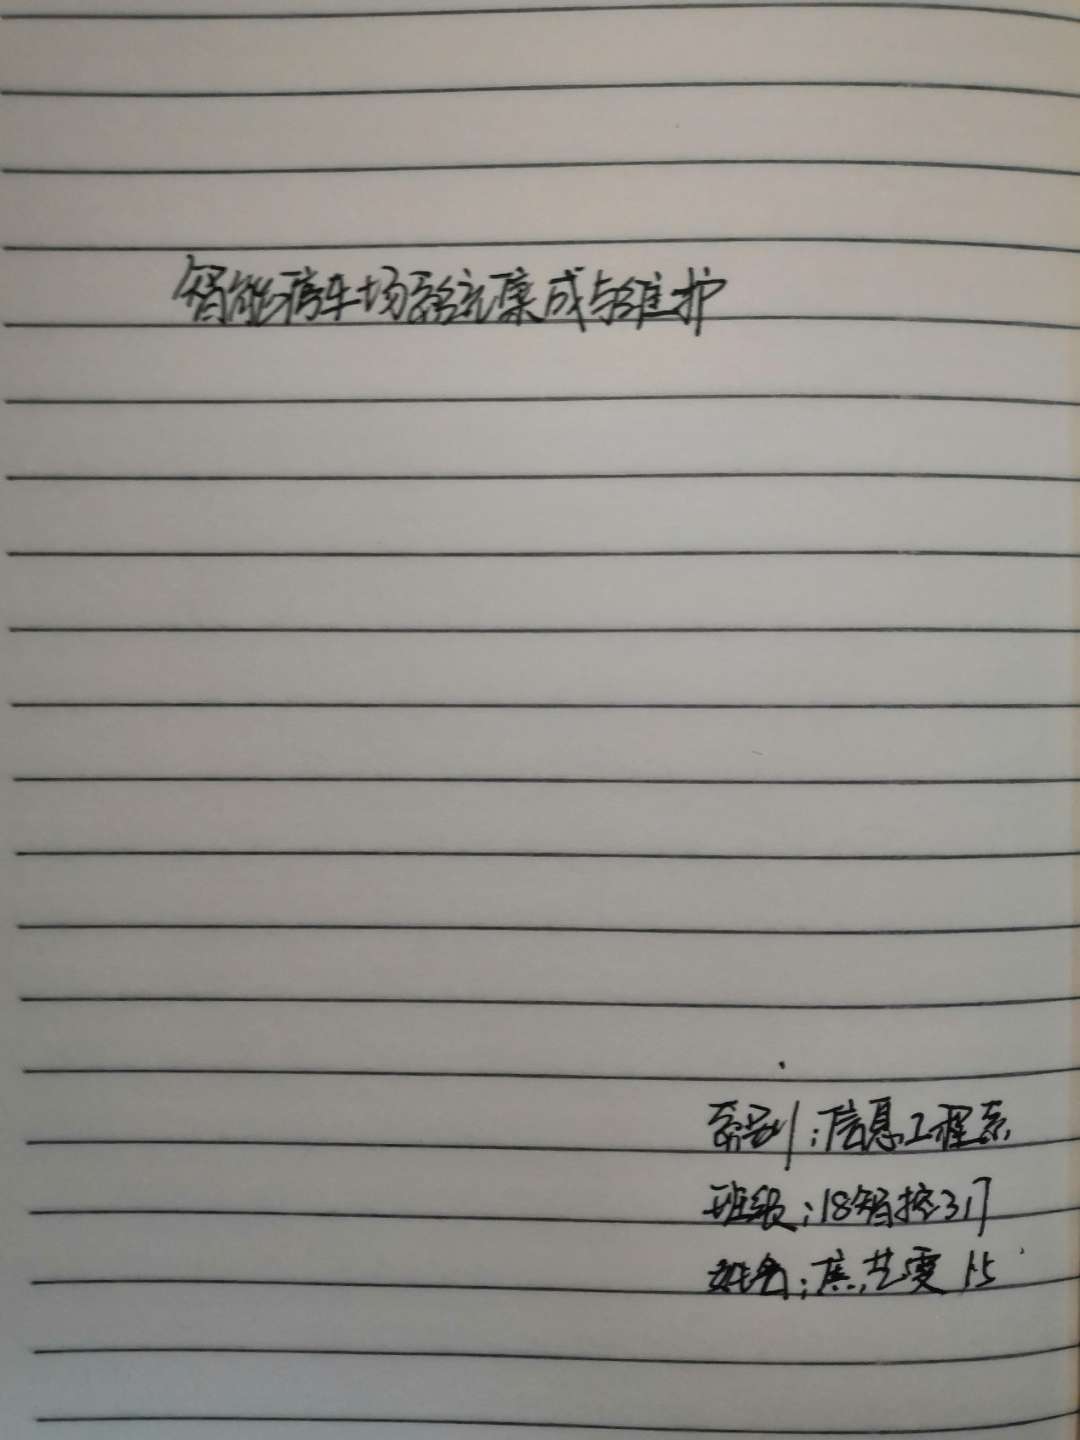 智能停车场系统集成与维护
系别:信息工程系
班级:18智控317
姓名:焦艺雯 15